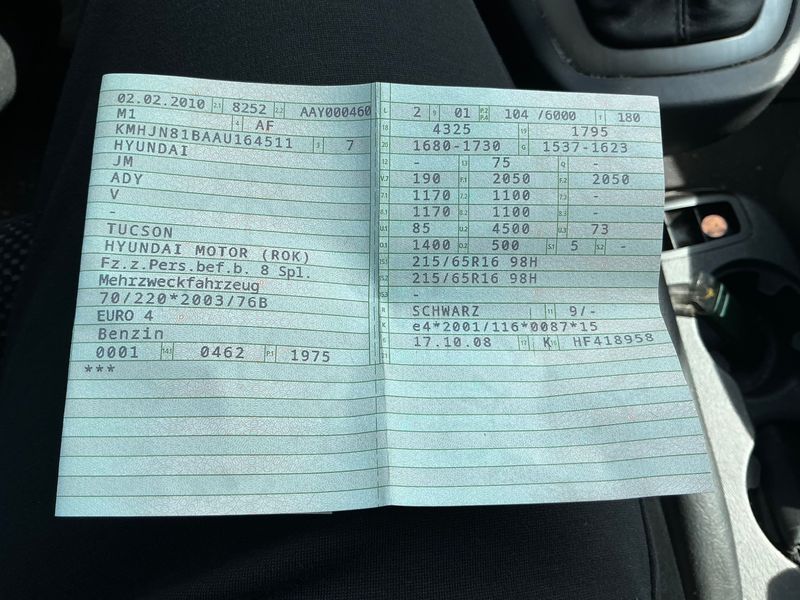 02.02.2010 2.1 8252 2.2 AAY000460
M1 4 AF
KMHJN81BAAU164511 3 7
HYUNDAI
JM
ADY
V
-
TUCSON
HYUNDAI MOTOR (ROK)
Fz.z.Pers.bef.b. 8 Spl.
Mehrzweckfahrzeug
70/220*2003/76B
EURO 4
Benzin
0001 14.1 0462 P.1 1975
***
L 2 9 01 P.2 P.4 104 /6000 T 180
18 4325 19 1795
20 1680-1730 G 1537-1623
12 - 13 75 Q -
V.7 190 F.1 2050 F.2 2050
7.1 1170 7.2 1100 7.3 -
8.1 1170 8.2 1100 8.3 -
U.1 85 U.2 4500 U.3 73
O.1 1400 O.2 500 S.1 5 S.2 -
15.1 215/65R16 98H
15.2 215/65R16 98H
15.3 -
R SCHWARZ 11 9/-
K e4*2001/116*0087*15
6 17.10.08 17 K 16 HF418958
21